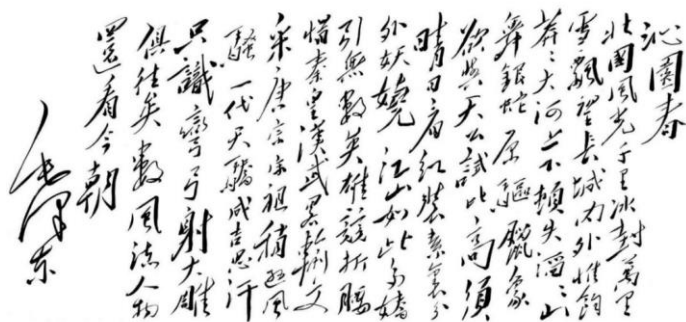 沁園春
北國風光千里冰封萬里
雪飄望長城內外惟餘
莽々大河上下頓失滔々山
舞銀蛇原驅臘象
欲與天公試比高須
晴日看紅裝素裹分
外妖嬈江山如此多嬌
引無數英雄競折腰
惜秦皇漢武略輸文
采唐宗宋祖稍遜風
騷一代天驕成吉思汗
只識彎弓射大雕
俱往矣數風流人物
還看今朝
毛澤东